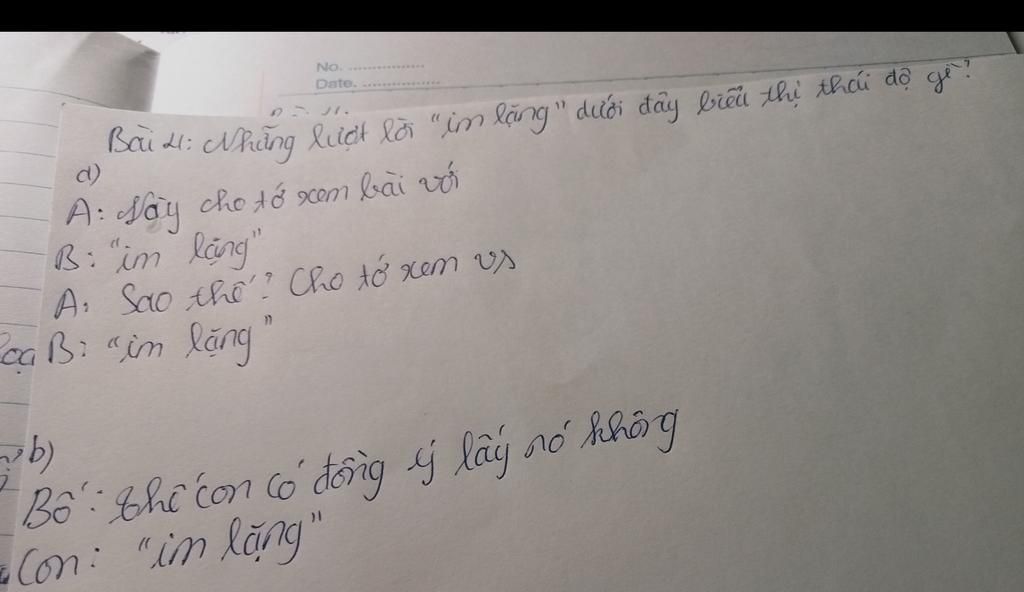 No. ................
Date. ................
Bài 4: Những lượt lời "im lặng" dưới đây biểu thị thái độ gì?
a)
A: Này cho tớ xem bài với
B: "im lặng"
A: Sao thế? Cho tớ xem vs
B: "im lặng"
b)
Bố: thế con có đồng ý lấy nó không
Con: "im lặng"